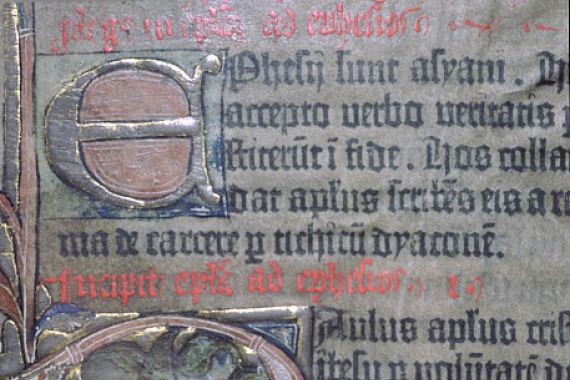 ad ephesios
EPhesij sunt asyani . H
accepto verbo veritatis p
stiterūt ī fide . Hos colla
dat aplus scribēs eis a ro
ma de carcere p tichicū dyaconē.
Incipit epla ad ephesios
Paulus aplus crist
ihesu p volūtatē d